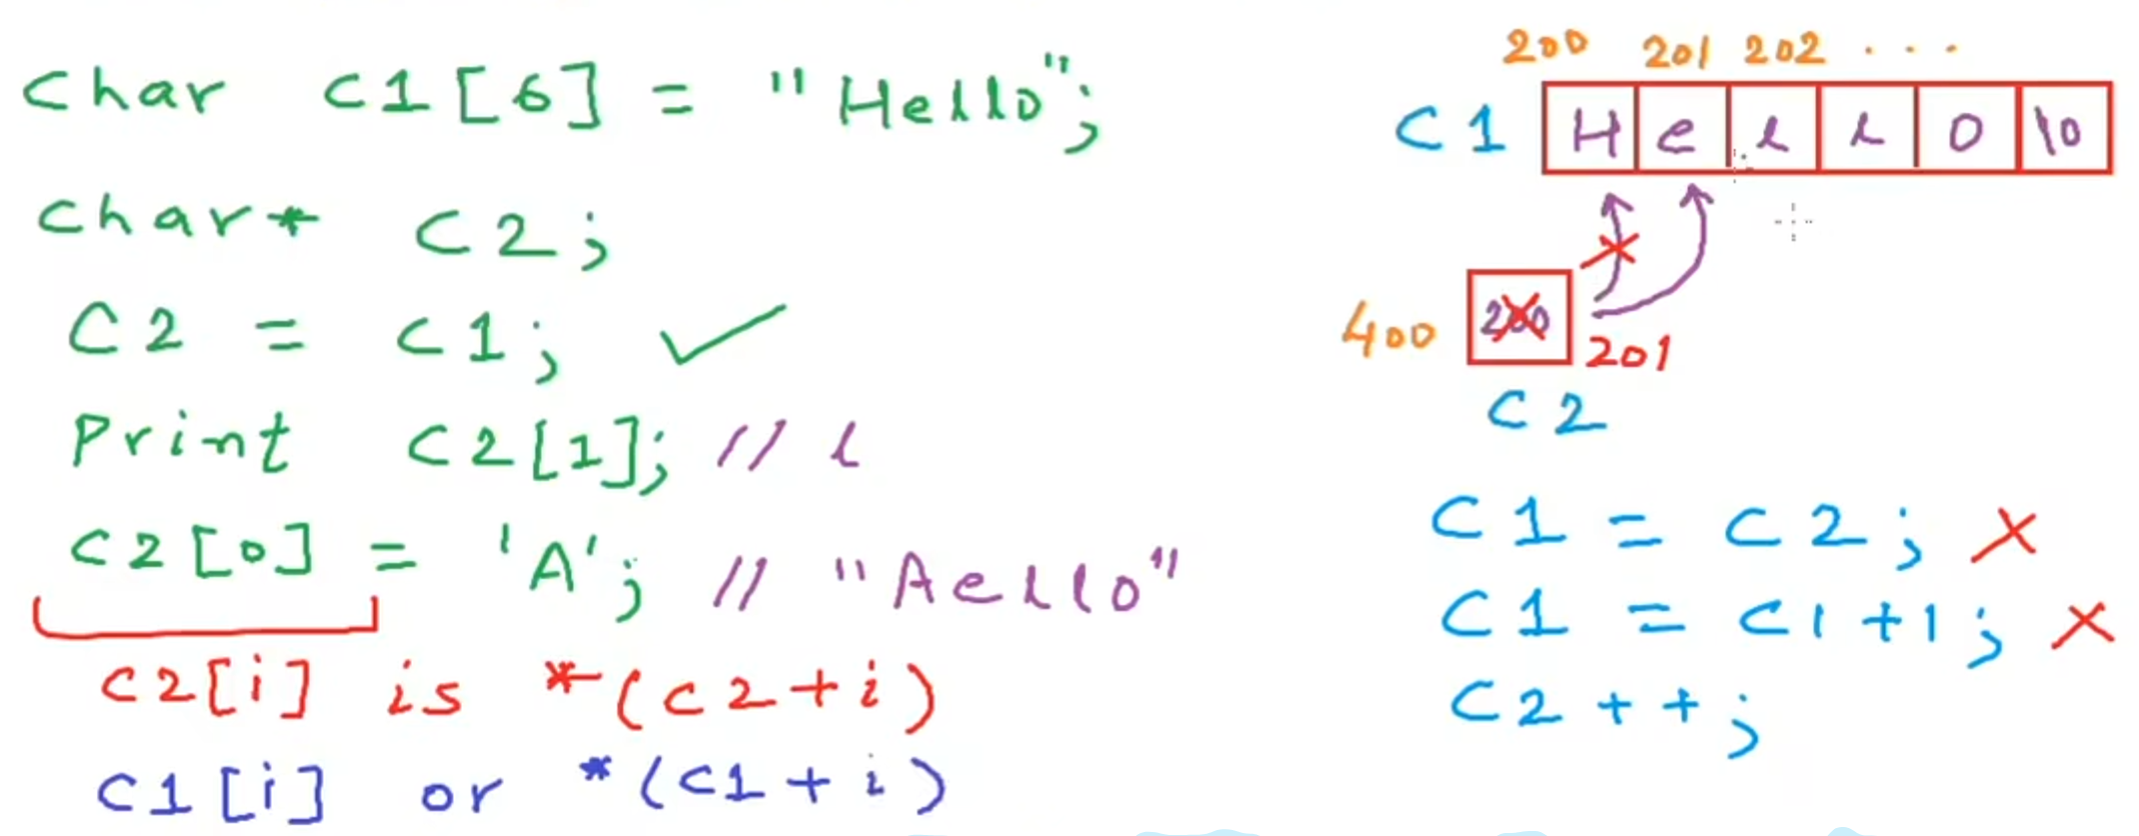 Char C1[6] = "Hello";
Char* C2;
C2 = C1; ✓
Print C2[1]; // l
C2[0] = 'A'; // "Aello"
C2[i] is *(C2+i)
C1[i] or *(C1+i)
200 201 202 . . .
C1 H e l l o \0
400 200 201
C2
C1 = C2; X
C1 = C1+1; X
C2++;